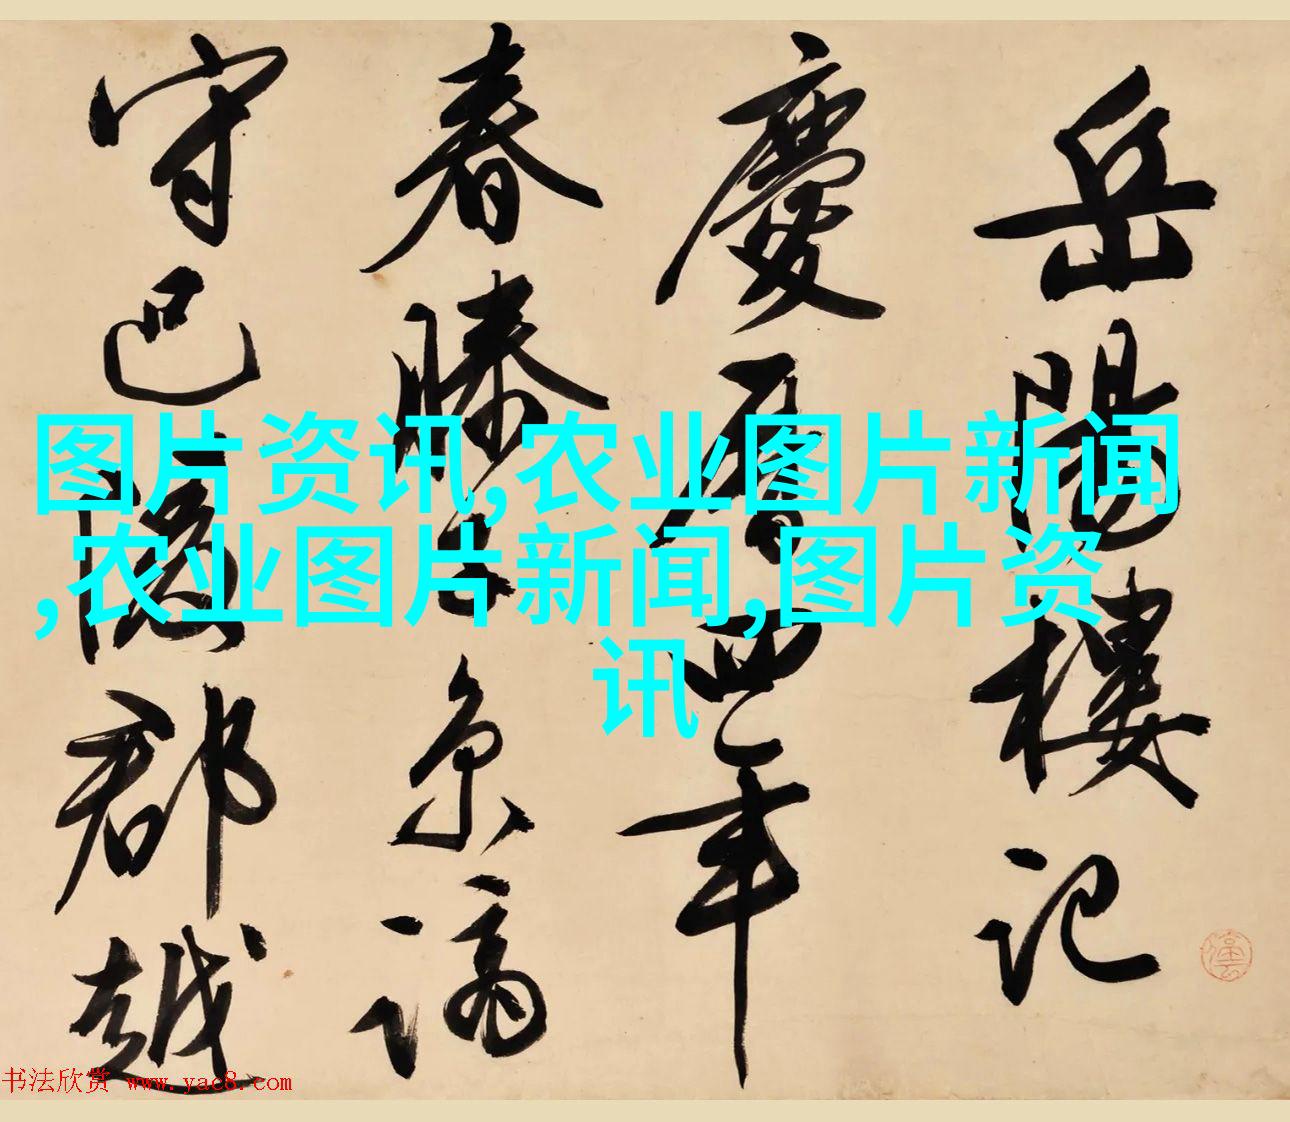 岳陽樓記
慶曆四年
春滕子京謫
守巴陵郡越
图片资讯,农业图片新闻
,农业图片新闻,图片资
讯
书法欣赏 www.yac8.com